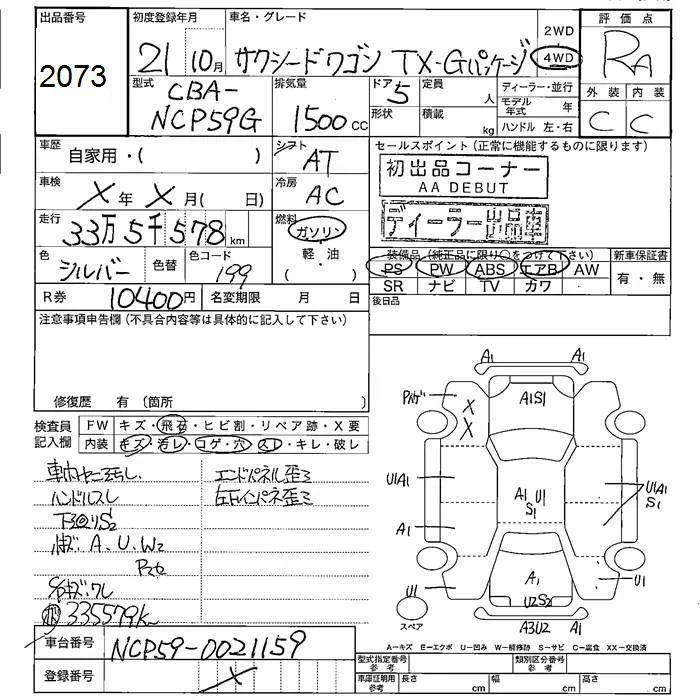 出品番号
2073
初度登録年月
21 10月
車名・グレード
サクシードワゴン TX-Gパッケージ
2WD
4WD
評価点
RA
型式
CBA-
NCP59G
排気量
1500 cc
ドア 5
定員 人
形状
積載 kg
ディーラー・並行
モデル年式 年
ハンドル 左・右
外装 内装
C C
車歴
自家用・( )
シフト
AT
車検
X年 X月( 日)
冷房
AC
走行
33万5千578km
燃料
ガソリン
軽・油
( )
色
シルバー
色替
色コード
199
R券
10400円
名変期限 月 日
セールスポイント(正常に機能するものに限ります)
初出品コーナー
AA DEBUT
ディーラー出品車
装備品(純正品に限り○をつけて下さい)
PS PW ABS エアB AW
SR ナビ TV カワ
新車保証書
有・無
後日品
注意事項申告欄(不具合内容等は具体的に記入して下さい)
修復歴 有(箇所 )
検査員記入欄
FW キズ・飛石・ヒビ割・リペア跡・X要
内装 キズ・汚レ・コゲ・穴・スレ・キレ・破レ
ハンドルスレ
下廻りS2
A、U、W2
335579km
エンドパネル歪ミ
左Fインパネ歪ミ
車台番号
NCP59-0021159
登録番号
X
A1 A1
A1S1
X
X
U1A1
A1
U1
A1 U1
S1
U1A1
S1
A1
U2S2
U1
A3U2 A1
スペア
A-キズ E-エクボ U-凹み W-補修跡 S-サビ C-腐食 XX-交換済
型式指定番号
参考
類別区分番号
参考
車庫証明用
参考
長さ cm
幅 cm
高さ cm